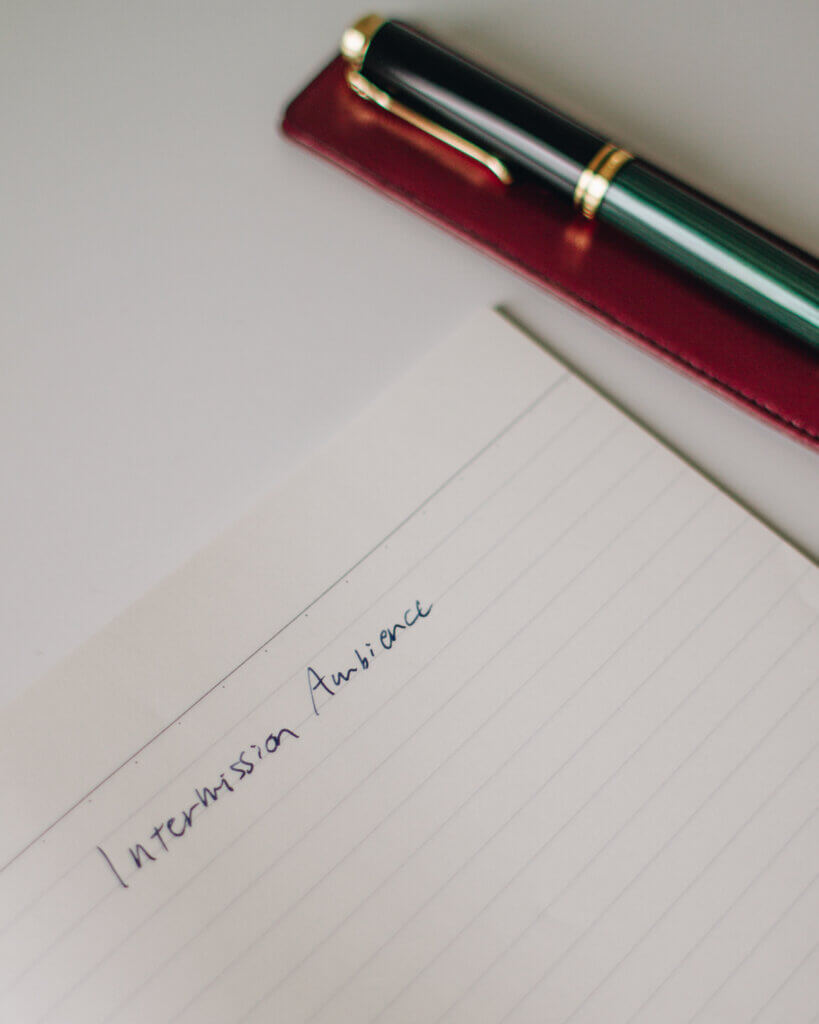 Intermission Ambience